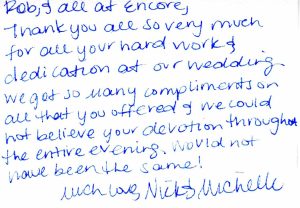 Rob, & all at Encore,
Thank you all so very much
for all your hard work &
dedication at our wedding.
We got so many compliments on
all that you offered & we could
not believe your devotion throughout
the entire evening. Would not
have been the same!
Much love, Nick & Michelle